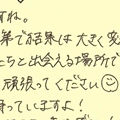 すね。
第で結果は大きく変
たっと出会える場所で
頑張ってください☺
待っていますよ!